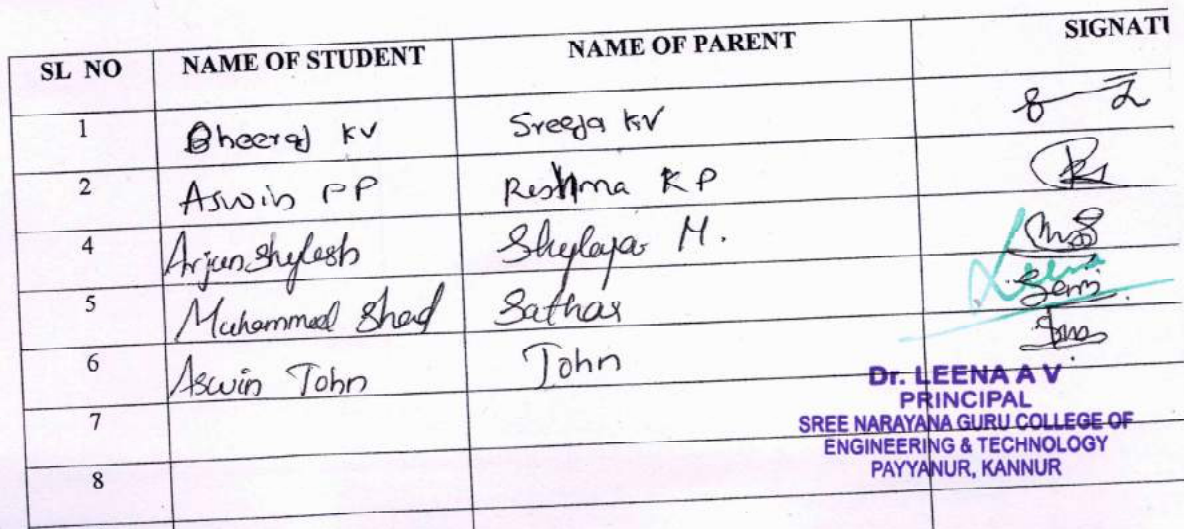 SL NO NAME OF STUDENT NAME OF PARENT SIGNATU
1 Dheeraj KV Sreeja KV
2 Aswin PP Reshma K P
4 Arjun Shylesh Shylaja M.
5 Muhammed Shad Sathar
6 Aswin John John
7
8
Leena
Dr. LEENA A V
PRINCIPAL
SREE NARAYANA GURU COLLEGE OF
ENGINEERING & TECHNOLOGY
PAYYANUR, KANNUR